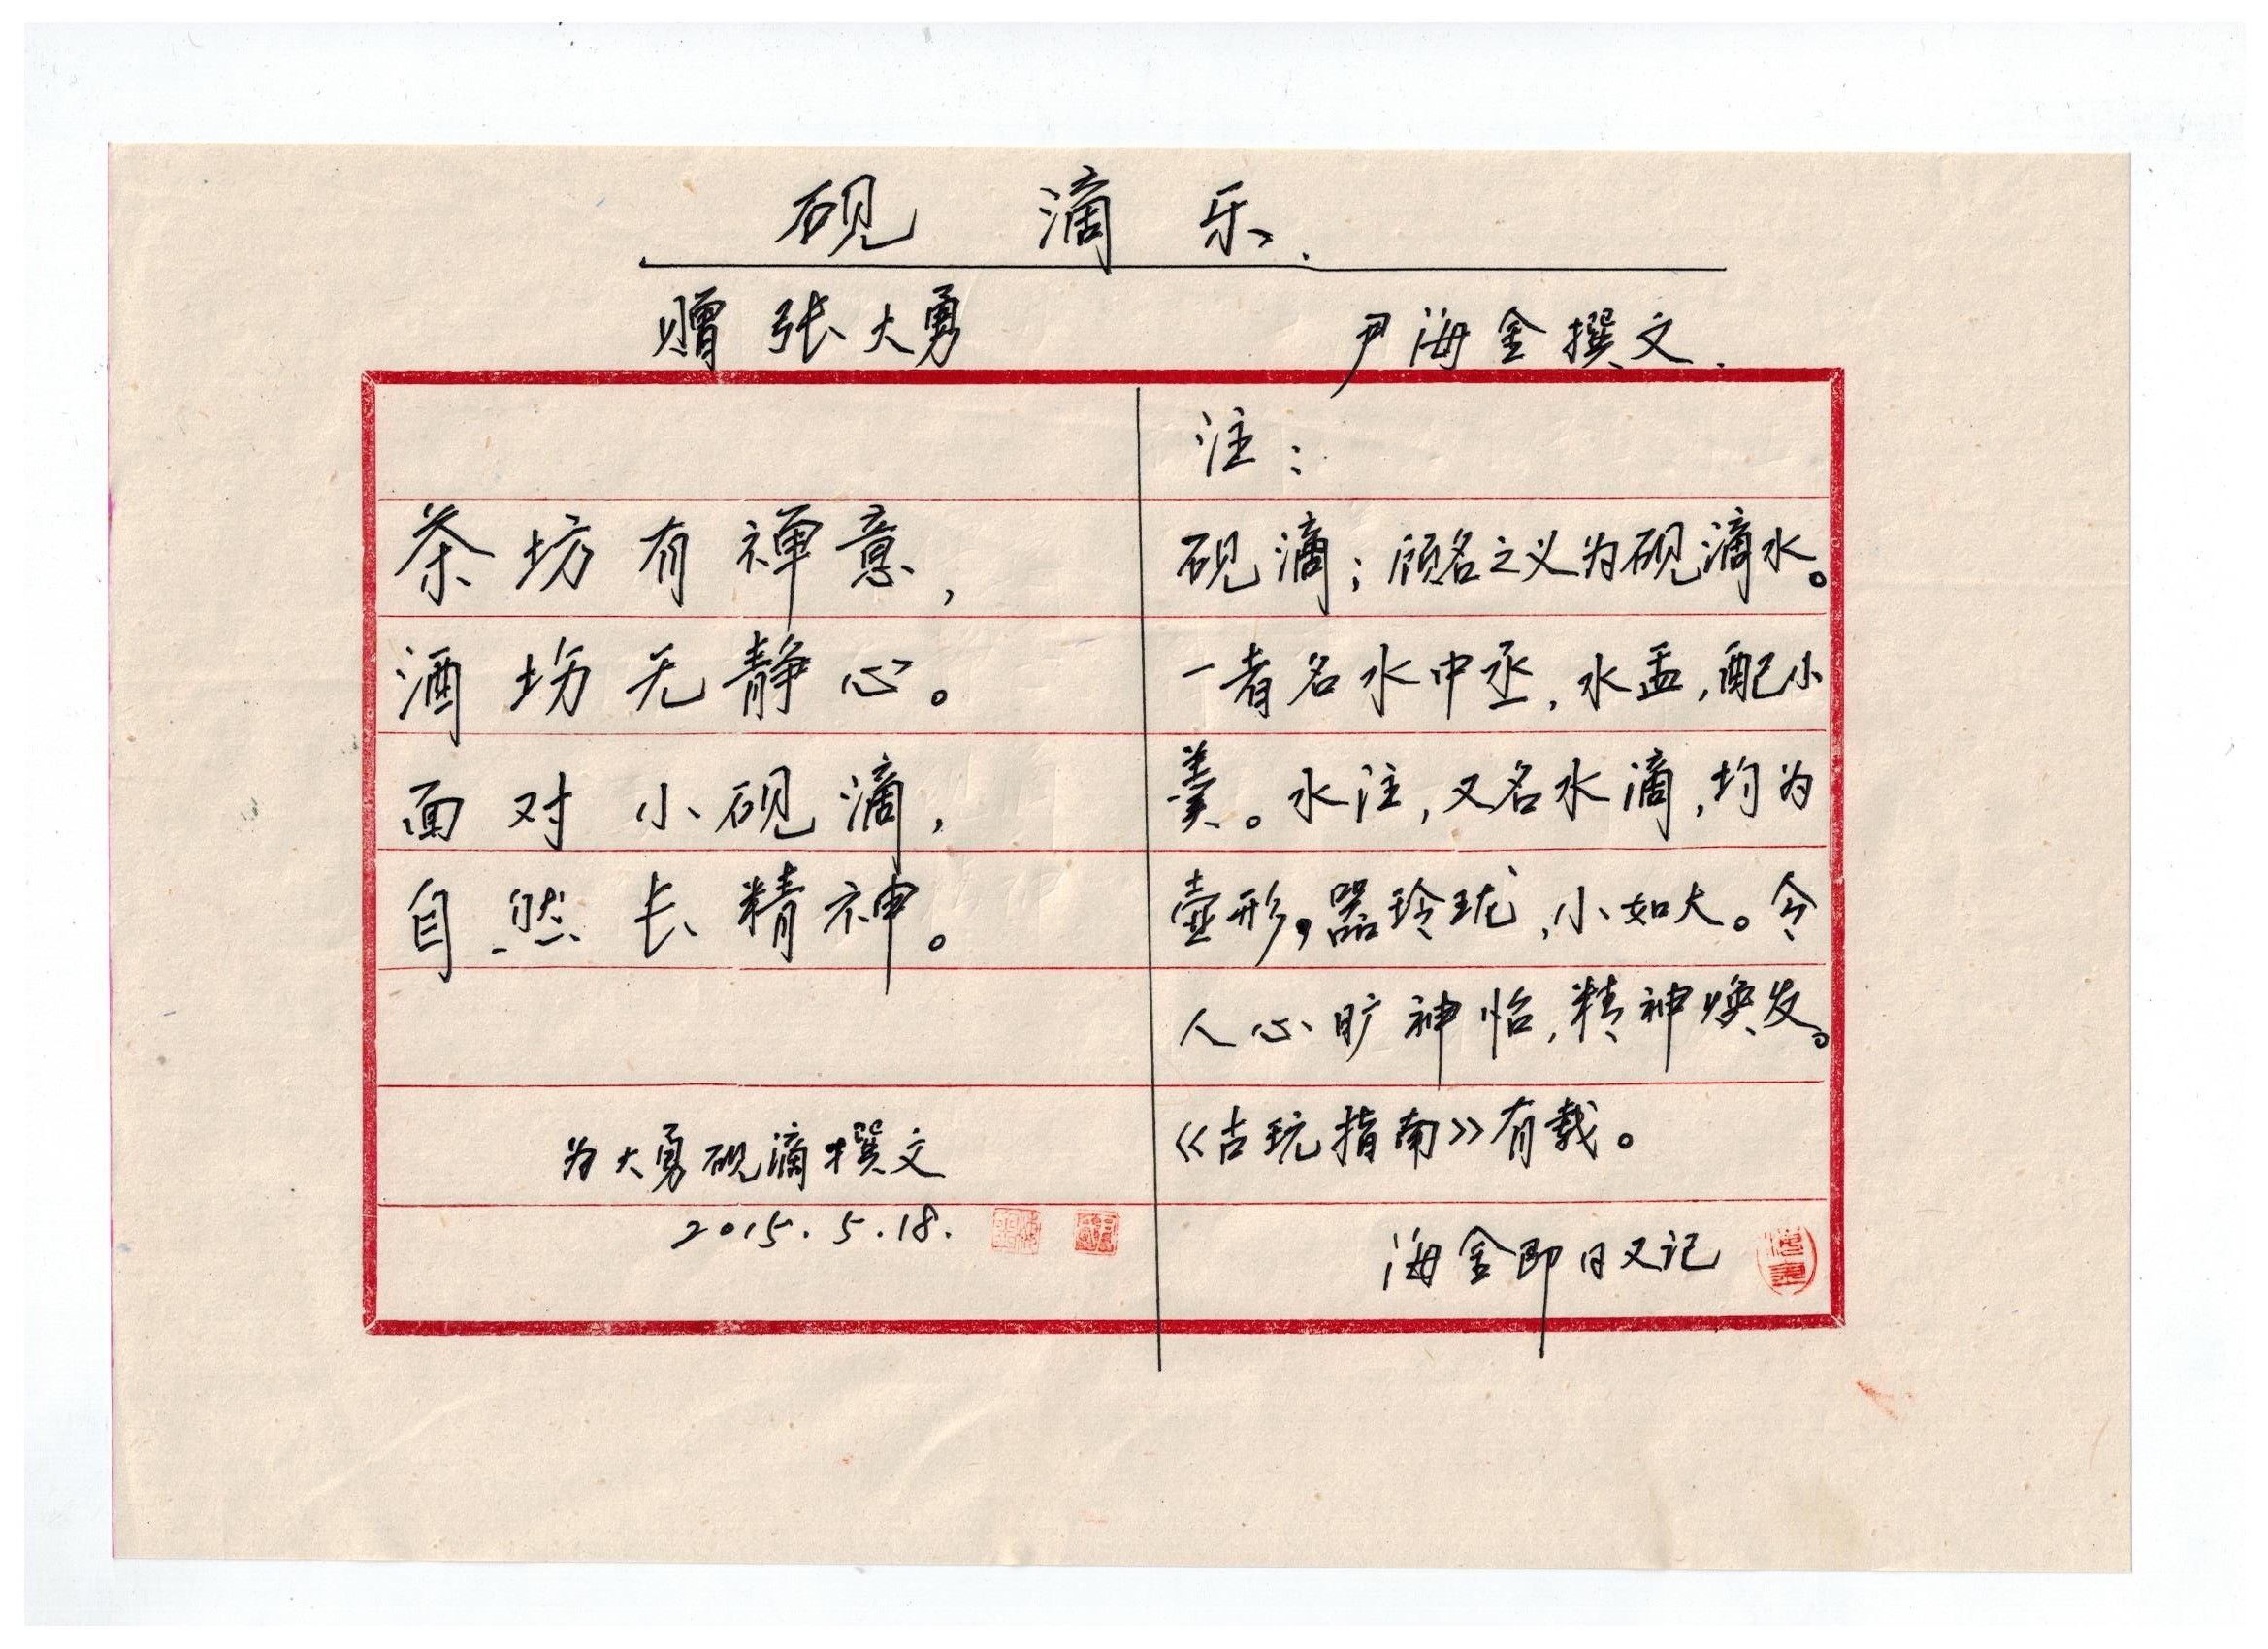 砚滴乐.
赠张大勇
尹海金撰文.
茶坊有禅意,
酒坊无静心。
面对小砚滴,
自然长精神。
为大勇砚滴撰文
2015.5.18.
注:
砚滴;顾名之义为砚滴水。
一者名水中丞,水盂,配小
。水注,又名水滴,均为
壶形,器玲珑,小如大。令
人心旷神怡,精神焕发。
《古玩指南》有载。
海金即日又记